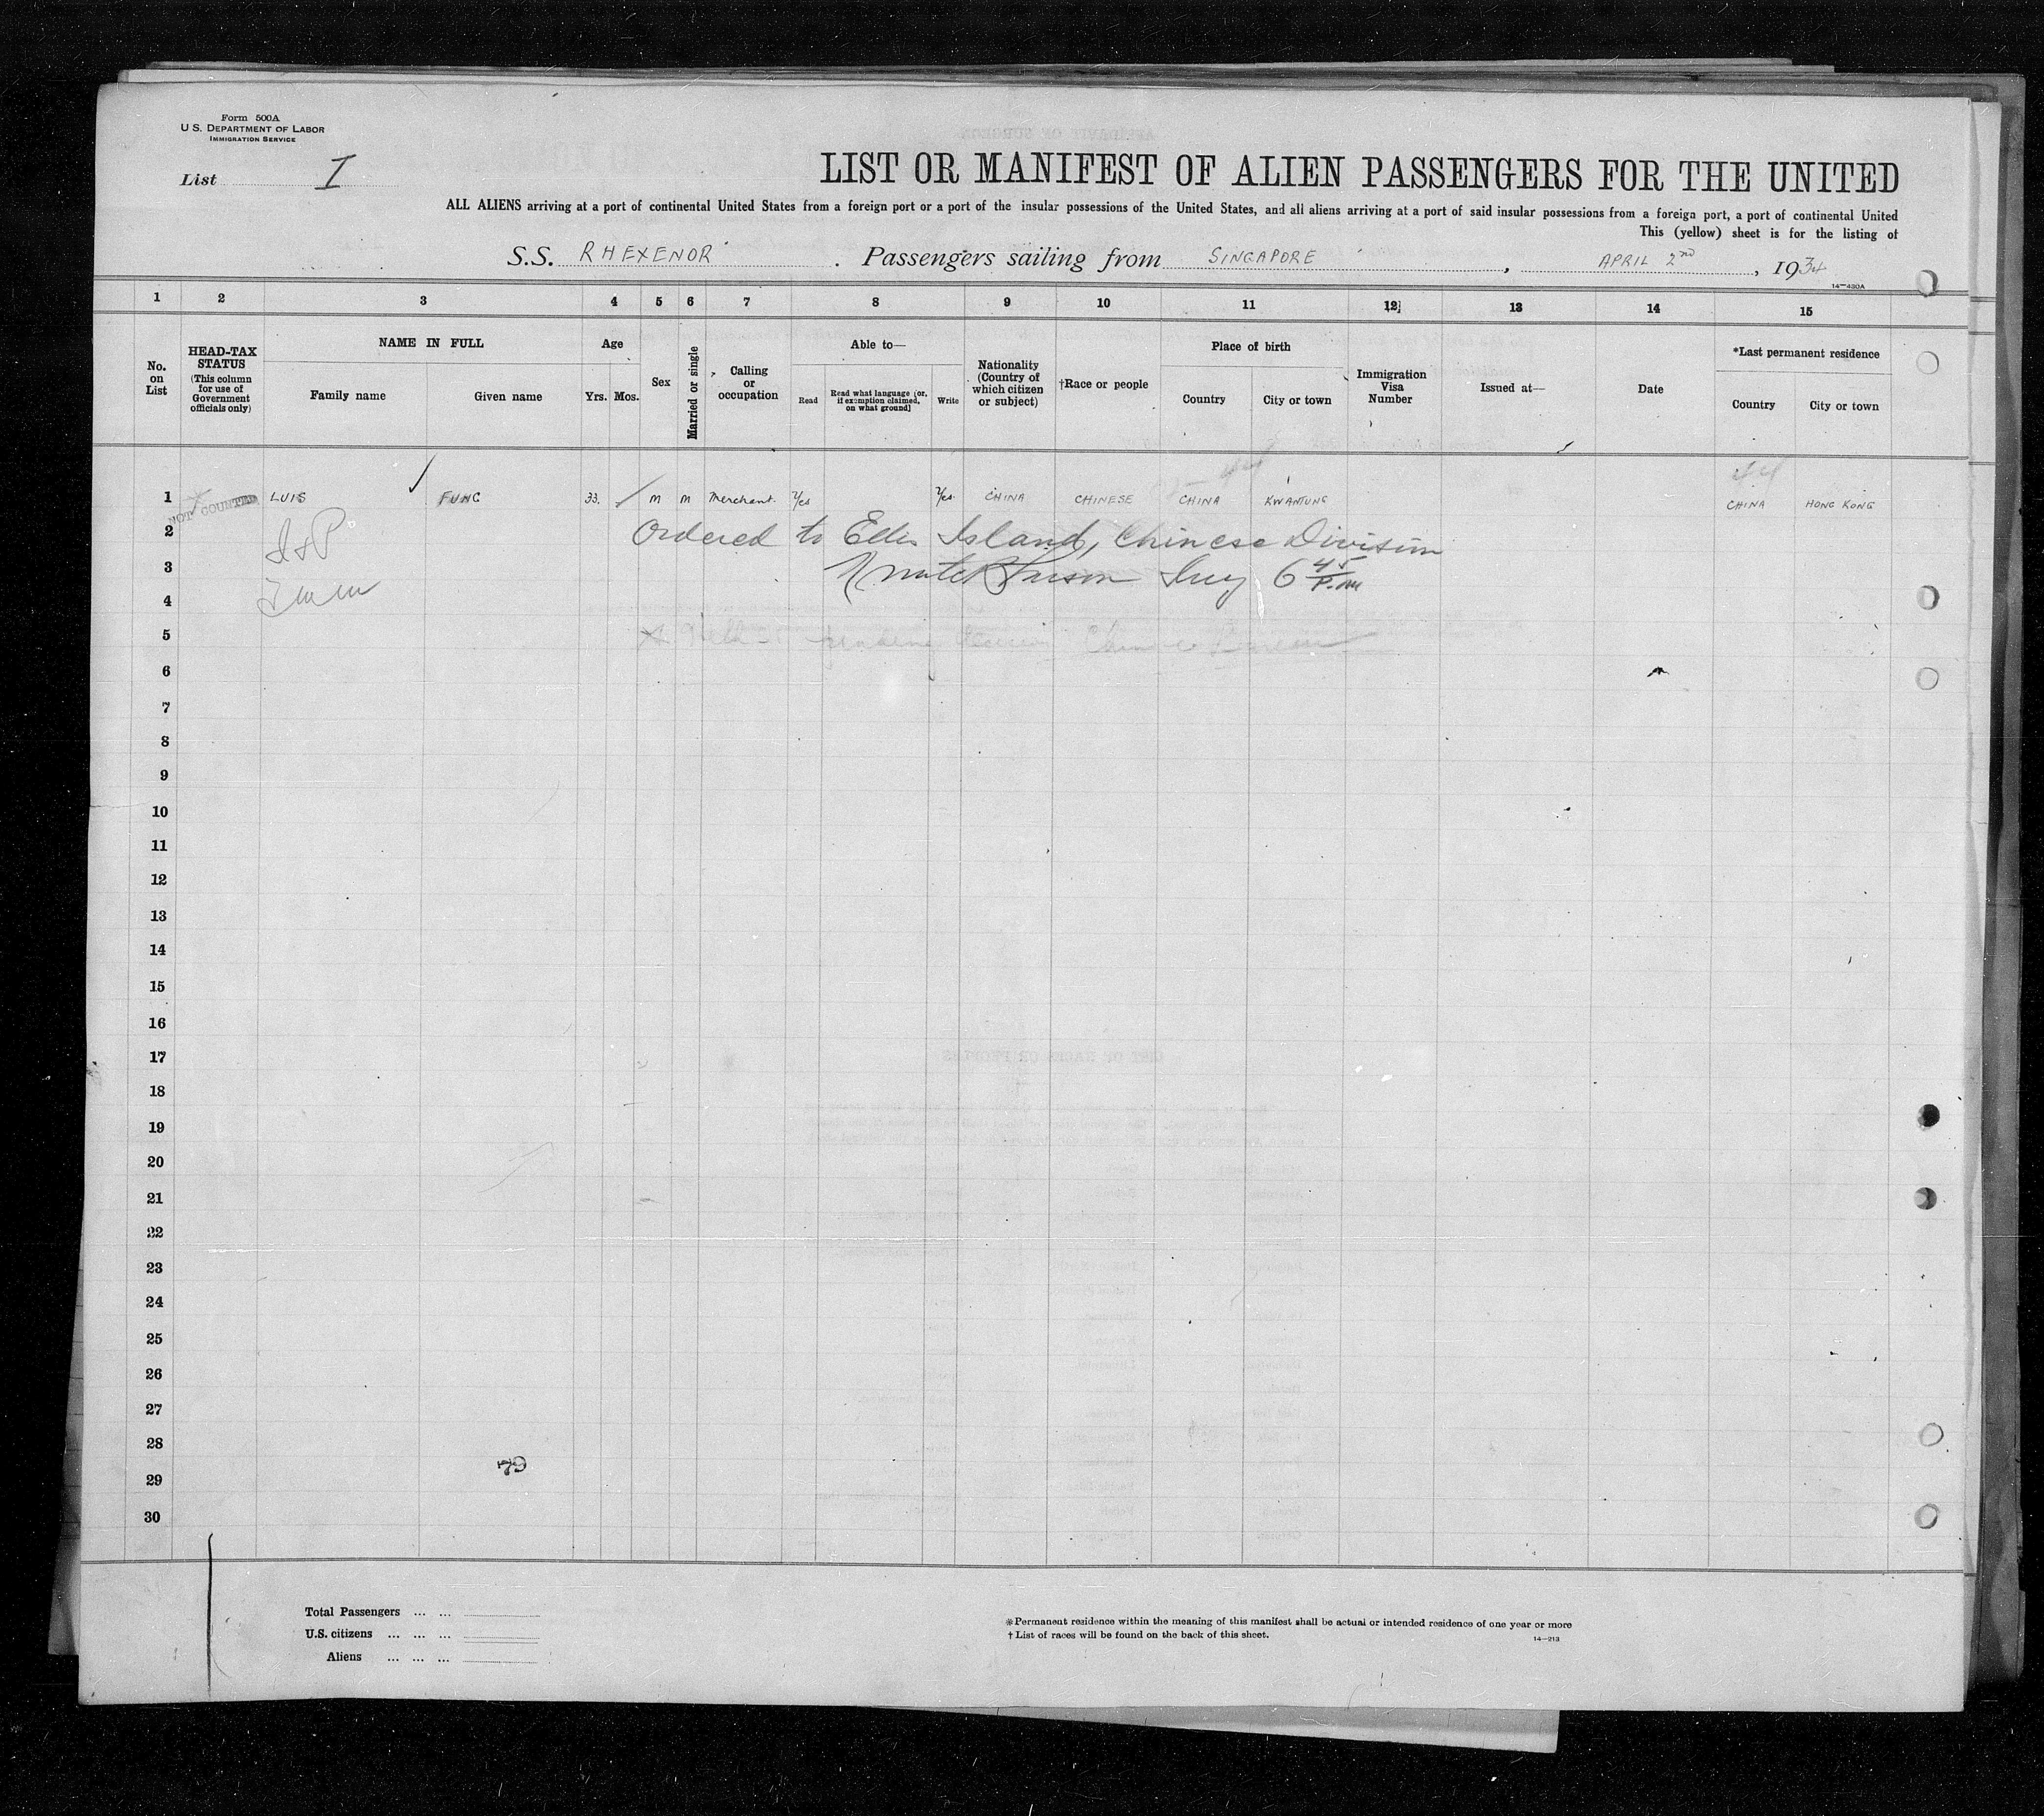 Form 500A
U. S. DEPARTMENT OF LABOR
IMMIGRATION SERVICE
List I
LIST OR MANIFEST OF ALIEN PASSENGERS FOR THE UNITED
ALL ALIENS arriving at a port of continental United States from a foreign port or a port of the insular possessions of the United States, and all aliens arriving at a port of said insular possessions from a foreign port, a port of continental United
This (yellow) sheet is for the listing of
S.S. RHEXENOR. Passengers sailing from SINGAPORE, APRIL 2nd, 1934
14—430A
1 2 3 4 5 6 7 8 9 10 11 12] 13 14 15
No. on List
HEAD-TAX STATUS (This column for use of Government officials only)
NAME IN FULL
Family name Given name
Age
Yrs. Mos.
Sex
Married or single
Calling or occupation
Able to—
Read
Read what language [or, if exemption claimed, on what ground]
Write
Nationality (Country of which citizen or subject)
†Race or people
Place of birth
Country City or town
Immigration Visa Number
Issued at—
Date
*Last permanent residence
Country City or town
44
1 NOT COUNTED LUIS FUNG 33 M M Merchant Yes Yes CHINA CHINESE CHINA KWANTUNG CHINA HONG KONG
2 Ordered to Ellis Island, Chinese Division
3 6 45 P.M
4
5
6
7
8
9
10
11
12
13
14
15
16
17
18
19
20
21
22
23
24
25
26
27
28
29
30
79
Total Passengers ... ...
U.S. citizens ... ... ...
Aliens ... ... ...
*Permanent residence within the meaning of this manifest shall be actual or intended residence of one year or more
†List of races will be found on the back of this sheet.
14—213